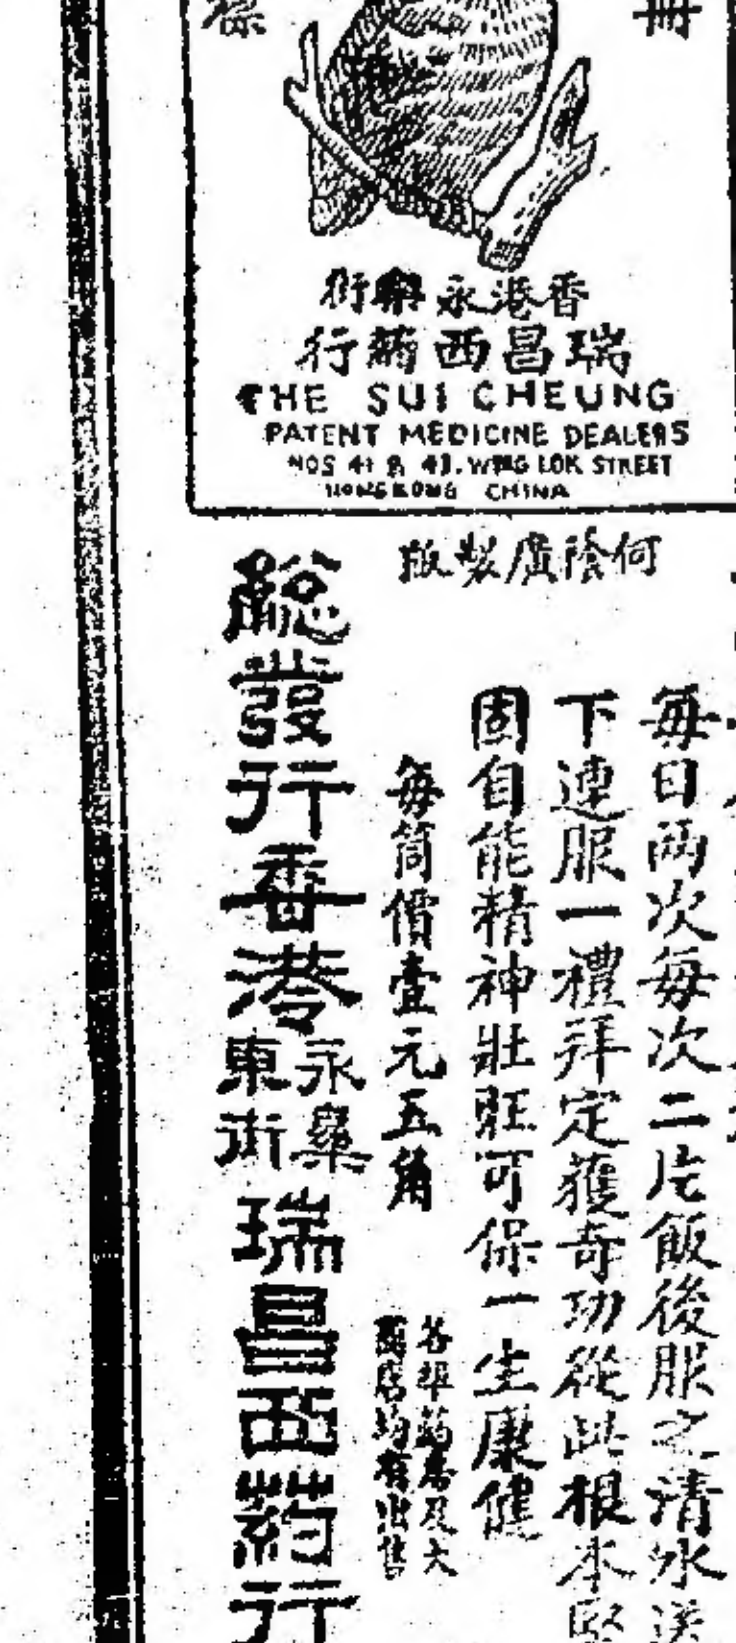 冊
香港永樂街
瑞昌西葯行
THE SUI CHEUNG
PATENT MEDICINE DEALERS
NOS 41 & 43. WING LOK STREET
HONGKONG CHINA
何蔭廣製版
每日兩次每次二片飯後服之清水送
下連服一禮拜定獲奇功從此根本堅
固自能精神壯旺可保一生康健
每筒價壹元五角
各埠葯房及大
商店均有出售
總發行香港永樂東街瑞昌西葯行